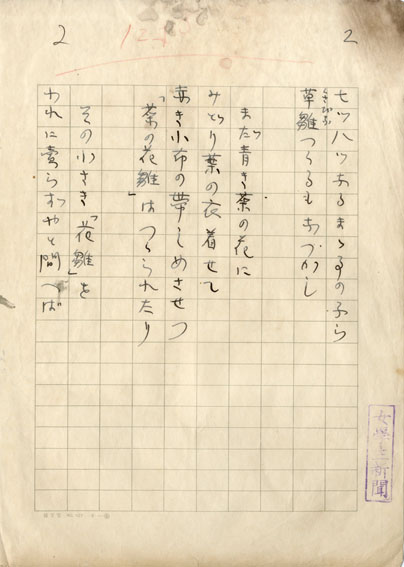 2
2
七ツ八ツなるまゝるの子ら
草雛つくるもおづかし
くさひな
まだ青き茶の花に
みどり葉の衣着せて
赤き小布の帯しめさせつ
「茶の花雛」はつくられたり
その小さき「花雛」を
われに賣らずやと問へば
女学生新聞